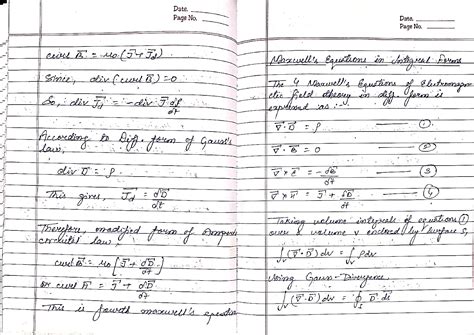 Date.
Page No.
curl B⃗ = μ₀ (J⃗ + J⃗d)
Since, div (curl B⃗) = 0
So, div J⃗d = - div J⃗ ∂ρ/∂t
According to Diff. form of Gauss's
law,
div D⃗ = ρ
This gives, J⃗d = ∂D⃗/∂t
Therefore, modified form of Ampere
circuital law
curl B⃗ = μ₀ [J⃗ + ∂D⃗/∂t]
or curl H⃗ = J⃗ + ∂D⃗/∂t
This is fourth maxwell's equation
Date.
Page No.
Maxwell's Equations in Integral Forms
The 4 Maxwell's Equations of Electromagn
etic field theory in diff form is
expressed as :
∇⃗ · D⃗ = ρ — (1)
∇⃗ · B⃗ = 0 — (2)
∇⃗ × E⃗ = -∂B⃗/∂t — (3)
∇⃗ × H⃗ = J⃗ + ∂D⃗/∂t — (4)
Taking volume integrals of equations (1)
over a volume v enclosed by surface S,
∫v (∇⃗ · D⃗) dv = ∫v ρ dv
Using Gauss-Divergence
∫v (∇⃗ · D⃗) dv = ∮s D⃗ · ds